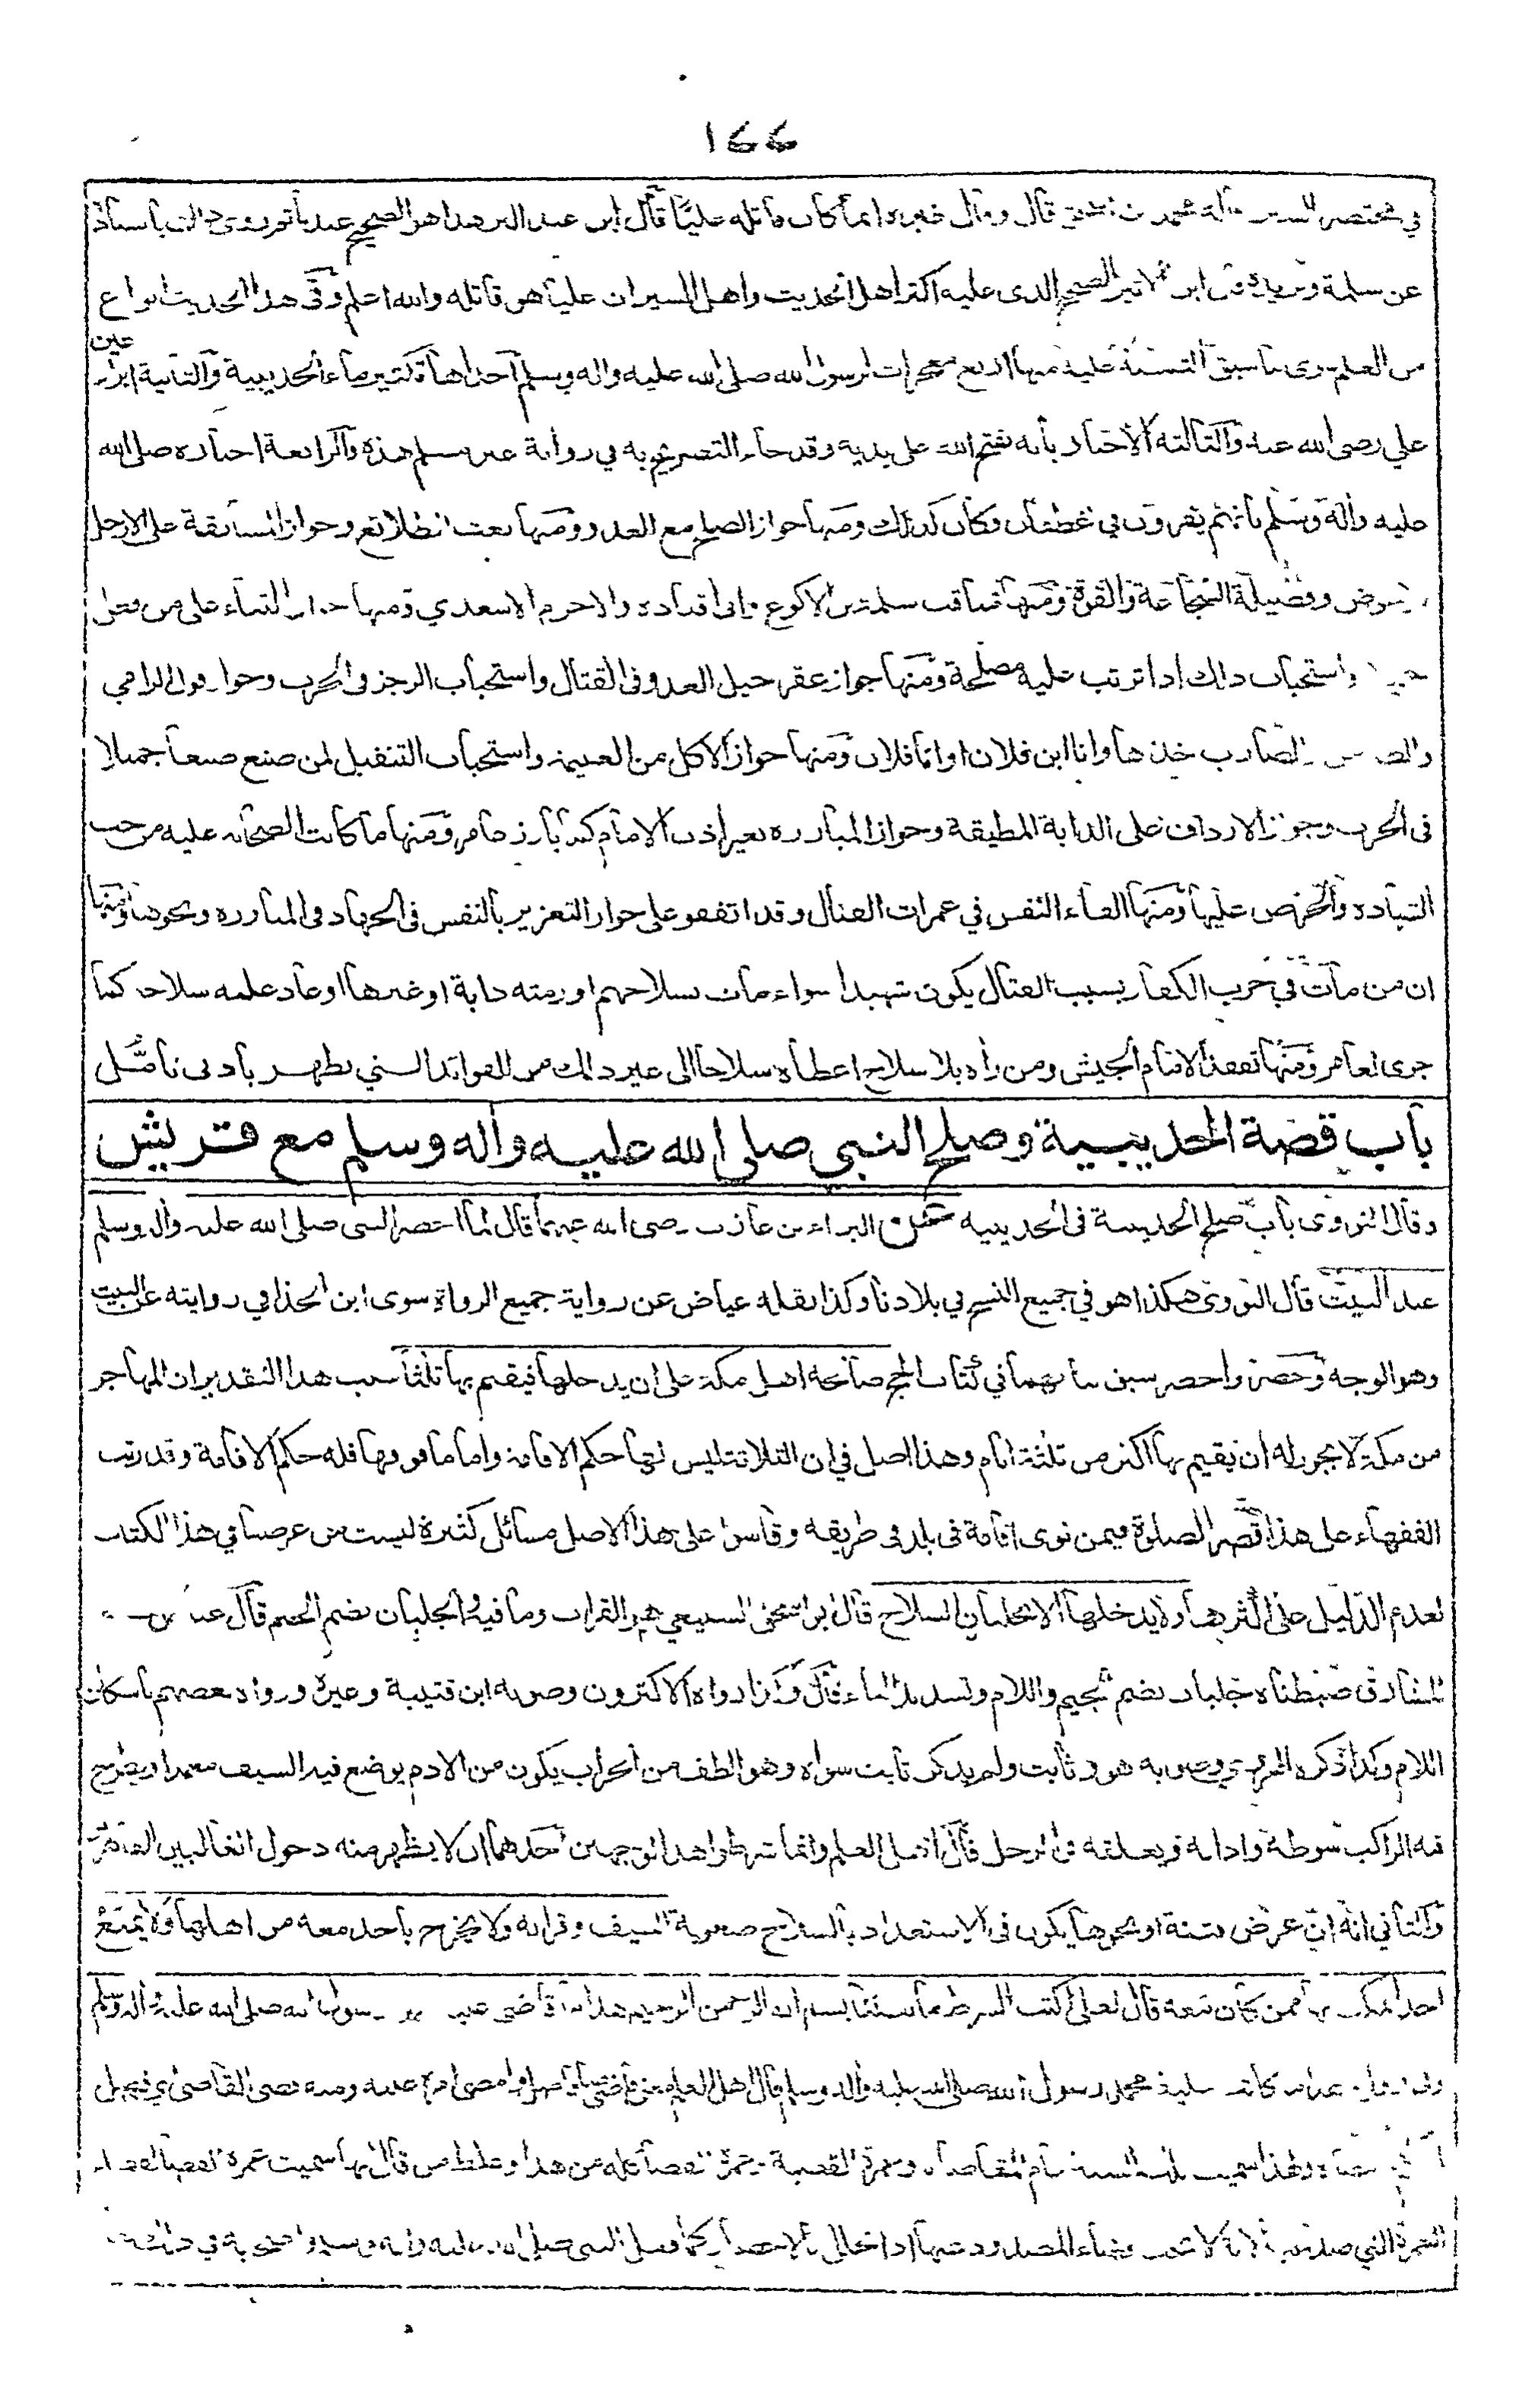 ١٦٦
في مختصر السير قال محمد بن قال وقال غيره انما كان قاتله عليا قال ابن عبد البر هذا هو الصحيح عندنا ثم روى ذلك باسناده
عن سلمة وبريدة قال ابن الاثير الصحيح الذى عليه اكثر اهل الحديث واهل السير ان عليا هو قاتله والله اعلم وفى هذا الحديث انواع
من العلم سوى ما سبق التنبيه عليه منها اربع معجزات لرسول الله صلى الله عليه واله وسلم احداها تكثير ماء الحديبية والثانية ابراء عين
علي رضى الله عنه والثالثة الاخبار بأنه يفتح الله على يديه وقد جاء التصريح به في رواية غير مسلم هذه والرابعة اخباره صلى الله
عليه واله وسلم بانهم يقرون في غطفان وكان كذلك ومنها جواز الصلح مع العدو ومنها بعث الطلائع وجواز المسابقة على الارجل
بلا عوض وفضيلة الشجاعة والقوة ومنها مناقب سلمة بن الاكوع وابى قتاده والاخرم الاسعدي ومنها جواز الثناء على من فعل
جميلا واستحباب ذلك اذا ترتب عليه مصلحة ومنها جواز عقر خيل العدو فى القتال واستحباب الرجز فى الحرب وجواز قول الرامي
والضارب خذها وانا ابن فلان او انا فلان ومنها جواز الاكل من الغنيمة واستحباب التنفيل لمن صنع صنعا جميلا
فى الحرب وجواز الارداف على الدابة المطيقة وجواز المبارزه بغير اذن الامام كما بارز عامر ومنها ما كانت الصحابه عليه من حب
الشهادة والحرص عليها ومنها القاء النفس في غمرات القتال وقد اتفقوا على جواز التغرير بالنفس فى الجهاد فى المبارزه ونحوها ومنها
ان من مات في حرب الكفار بسبب القتال يكون شهيدا سواء مات بسلاحهم او رمته دابة او غيرها او عاد عليه سلاحه كما
جرى لعامر ومنها تفقد الامام الجيش ومن راه بلا سلاح اعطاه سلاحا الى غير ذلك من الفوائد التي تظهر بأدنى تأمل
بأب قصة الحديبية وصلح النبي صلى الله عليه واله وسلم مع قريش
وقال النووى باب صلح الحديبية فى الحديبيه عن البراء بن عازب رضى الله عنهما قال لما احصر النبى صلى الله عليه واله وسلم
عند البيت قال النووى هكذا هو في جميع النسخ في بلادنا وكذا نقله عياض عن رواية جميع الرواة سوى ابن الحذا في روايته عن البيت
وهو الوجه وحصر واحصر سبق بيانهما في كتاب الحج صالحه اهل مكة على ان يدخلها فيقيم بها ثلثا سبب هذا التقدير ان المهاجر
من مكة لا يجوز له ان يقيم بها اكثر من ثلثة ايام وهذا اصل في ان الثلاثة ليس لها حكم الاقامة واما ما فوقها فله حكم الاقامة وقد رتب
الفقهاء على هذا قصر الصلوة فيمن نوى اقامة فى بلد فى طريقه وقاسوا على هذا الاصل مسائل كثيرة ليست من غرضنا في هذا الكتاب
لعدم الدليل على اكثرها ولا يدخلها الا بجلبان السلاح قال ابو اسحق السبيعي هو القراب وما فيه والجلبان بضم الجيم قال عياض في
المشارق ضبطناه جلبان بضم الجيم واللام وتشديد الباء قال وكذا رواه الاكثرون وصوبه ابن قتيبة وغيره ورواه بعضهم باسكان
اللام وكذا ذكره الهروي وصوبه هو وثابت ولم يذكر ثابت سواه وهو الطف من الجراب يكون من الادم يوضع فيه السيف مغمدا ويطرح
فيه الراكب سوطه واداته ويعلقه في الرحل قال اهل العلم وانما شرطوا هذا لوجهين احدهما ان لا يظهر منه دخول الغالبين القاهرين
والثاني انه ان عرض فتنة او نحوها يكون فى الاستعداد بالسلاح صعوبة السيف وقرابه ولا يخرج بأحد معه من اهلها ولا يمنع
احدا يمكث بها ممن كان معه قال لعلى اكتب الشرط بيننا بسم الله الرحمن الرحيم هذا ما قاضى عليه محمد رسول الله صلى الله عليه واله وسلم
محمد رسول الله صلى الله عليه واله وسلم قال اهل العلم معنى قاضى
ولهذا سميت
العمرة التي صد